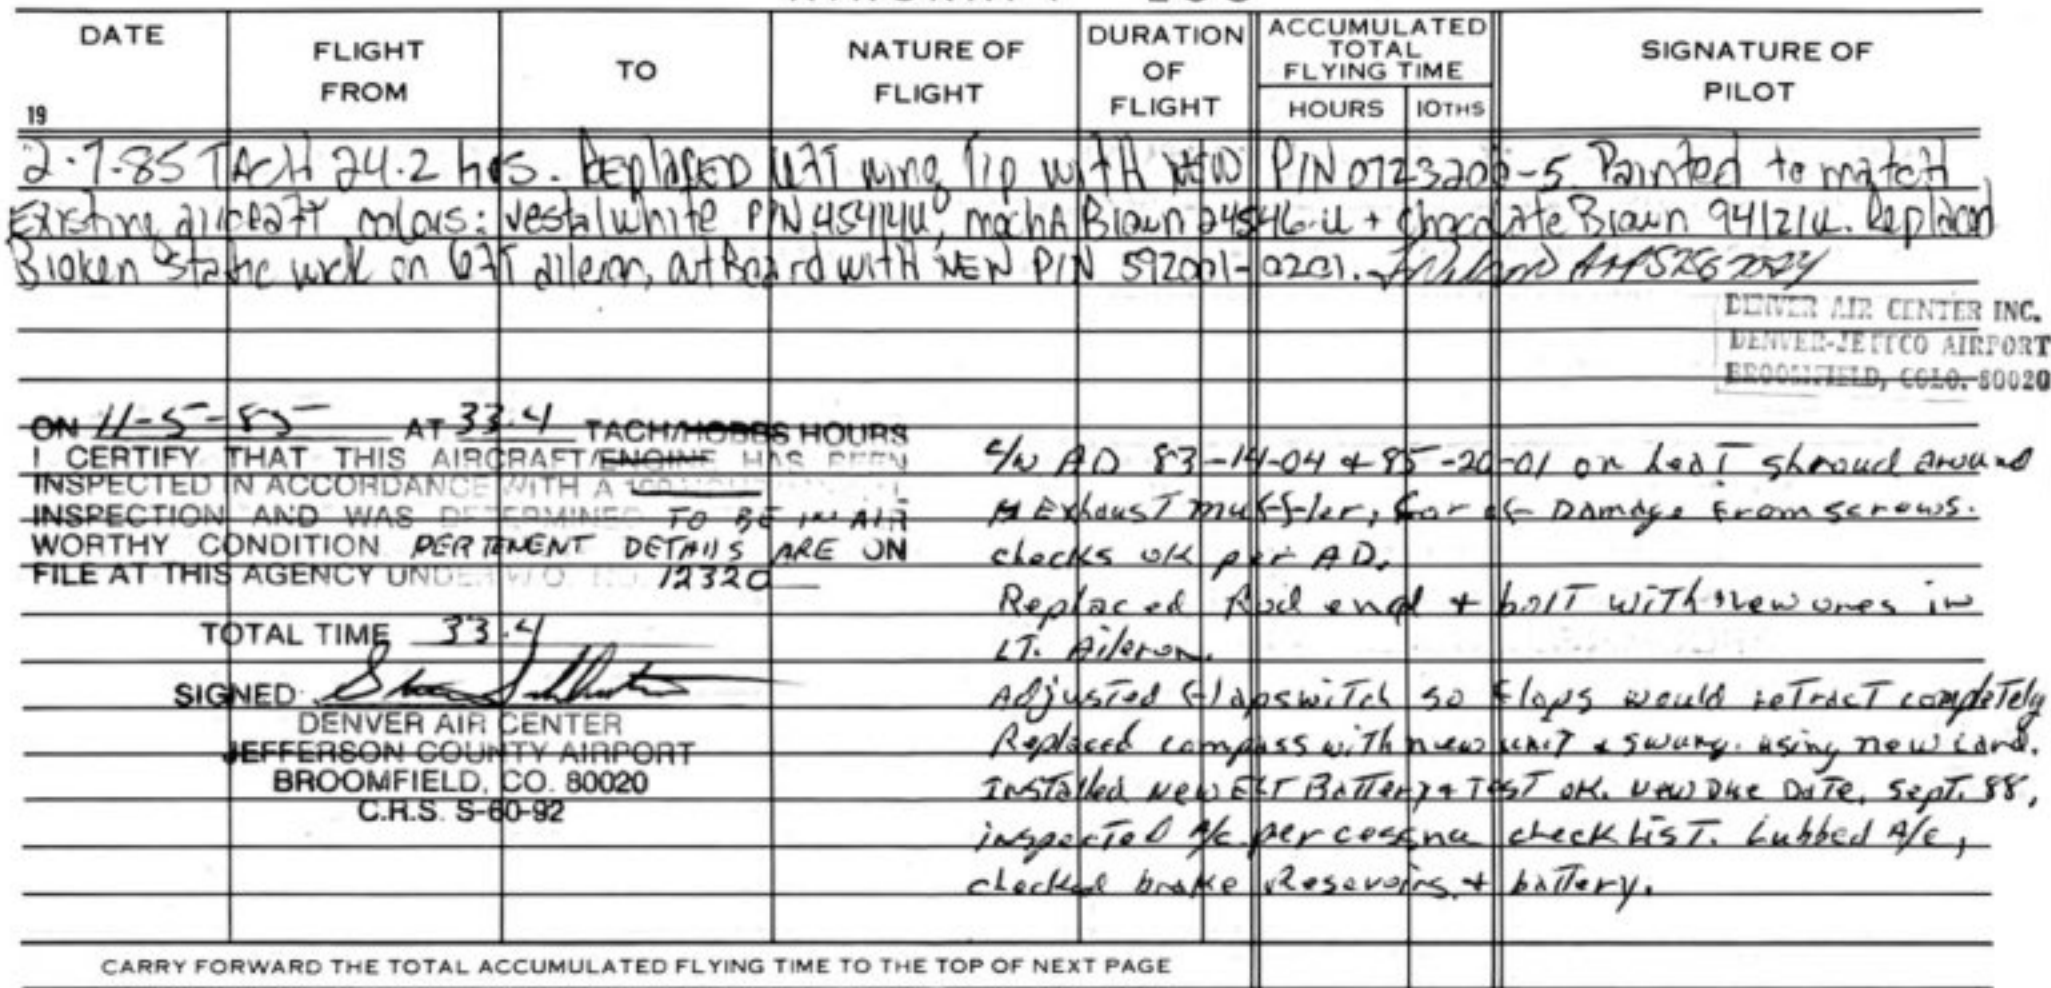 DATE
FLIGHT FROM
TO
NATURE OF FLIGHT
DURATION OF FLIGHT
ACCUMULATED TOTAL FLYING TIME
HOURS 10THS
SIGNATURE OF PILOT
19
2-7-85 TACH 24.2 hrs. Replaced left wing tip with new P/N 0723200-5 Painted to match
Existing aircraft colors: vestal white P/N 45414U, mocha Brown 24546-U + Chocolate Brown 94121U. Replaced
Broken static wick on left aileron, outboard with NEW P/N 592001-0201.
DENVER AIR CENTER INC.
DENVER-JEFFCO AIRPORT
BROOMFIELD, COLO. 80020
ON 11-5-85 AT 33.4 TACH/HOBBS HOURS
I CERTIFY THAT THIS AIRCRAFT/ENGINE HAS BEEN
INSPECTED IN ACCORDANCE WITH A
INSPECTION AND WAS DETERMINED TO BE IN AIR
WORTHY CONDITION PERTENENT DETAILS ARE ON
FILE AT THIS AGENCY UNDER W.O. NO. 12320
TOTAL TIME 33.4
SIGNED
DENVER AIR CENTER
JEFFERSON COUNTY AIRPORT
BROOMFIELD, CO. 80020
C.R.S. S-60-92
C/W AD 83-14-04 + 85-20-01 on heat shroud around
Exhaust muffler, for Damage from screws.
checks ok per AD.
Replaced Rod end + bolt with new ones in
LT. Aileron.
Adjusted flapswitch so flaps would retract completely
Replaced compass with new unit & swung. using new card.
Installed new ELT Battery & Test ok. New Due Date, Sept. 88,
inspected A/C per cessna check List. Lubbed A/C,
checked brake Resevoirs + battery.
CARRY FORWARD THE TOTAL ACCUMULATED FLYING TIME TO THE TOP OF NEXT PAGE